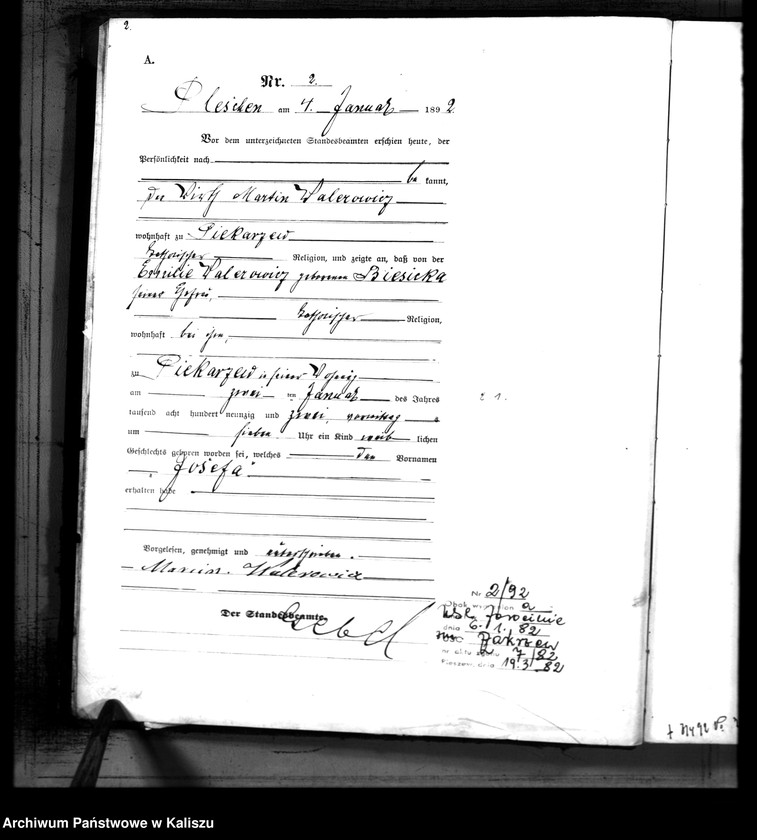 2.
A.
Nr. 2.
Pleschen am 4. Januar 1892.
Vor dem unterzeichneten Standesbeamten erschien heute, der
Persönlichkeit nach
be kannt,
der Wirth Martin Walerowicz
wohnhaft zu Piekarzew
katholischer Religion, und zeigte an, daß von der
Emilie Walerowicz geborenen Biesicka
seiner Ehefrau,
katholischer Religion,
wohnhaft bei ihm,
zu Piekarzew in seiner Wohnung
am zwei ten Januar des Jahres
tausend acht hundert neunzig und zwei, vormittags
um sieben Uhr ein Kind weib lichen
Geschlechts geboren worden sei, welches den Vornamen
„Josefa"
erhalten habe
Vorgelesen, genehmigt und unterschrieben.
Marcin Walerowicz
Der Standesbeamte.
Nr 2/92
a
USC Jarocinie
dnia 6.1. 82
USC Zakrzew
nr aktu zgonu 7/82
Pleszew, dnia 19.3.82
Archiwum Państwowe w Kaliszu